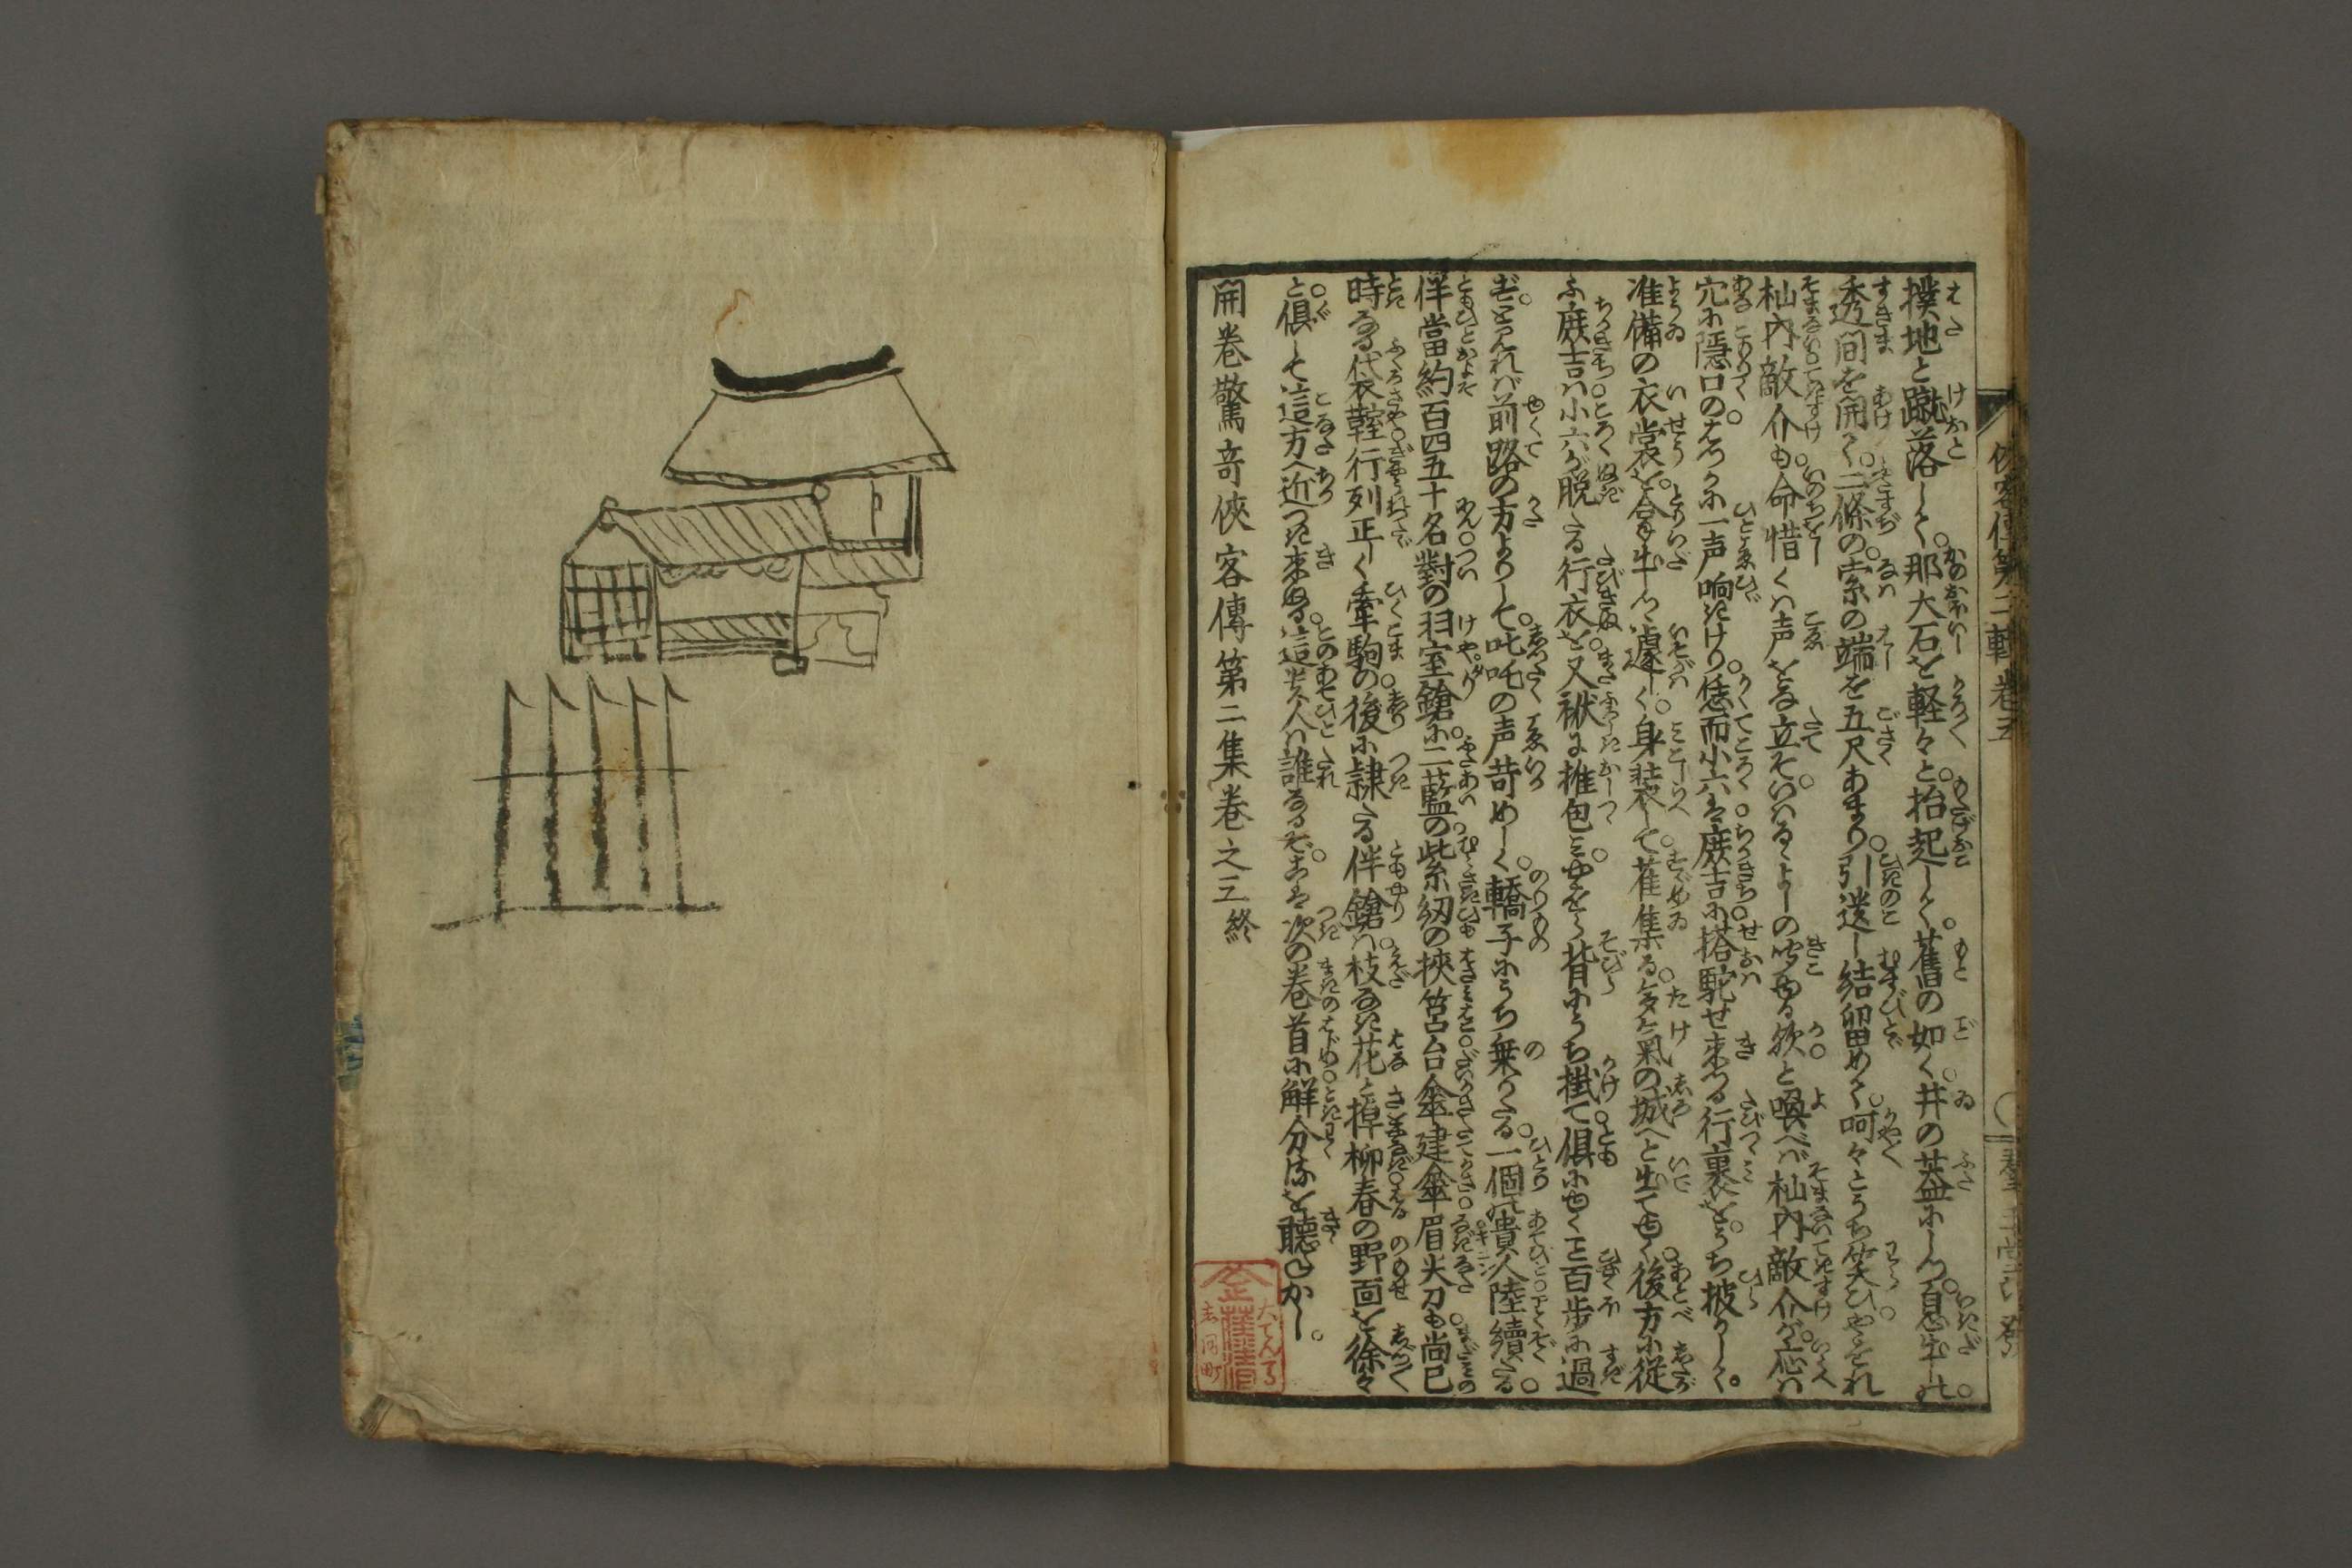 撲地と蹴落して。那大石を軽々と抬起して。舊の如く。井の蓋にしつ。息出しの
透間を開く。二條の索の端を五尺あまり。引遺し結留めて。呵々とうち笑ひ。やをれ
杣内敵介も。命惜くハ声をな立そ。いハるゝよしの聞ゆる歟と喚べバ杣内敵介が。応ハ
穴に隱口の。はつかに一声响きけり。恁而小六は。庶吉に。搭駝せ来つる行裹を。うち披して。
准備の衣裳を。合出しつ遽しく。身装して。在集る。多氣の城へと出てゆく。後方に從
ふ庶吉ハ。小六が脱たる行衣を。又袱に推包ミ。やをら背にうち掛て。倶にゆくこと百歩に過
ぎざれバ。前路の方よりして。叱咤の声苛めしく。轎子にうち乗りたる。一個の貴人陸續たる
伴當約百四五十名。對の羽室鎗。に二藍の紫紉の挾筥。台傘建傘。眉尖刀も尚已
時なる。代衣鞍。行列正しく牽駒の。後に隷たる伴鎗ハ。枝なき花と掉柳。春の野面を徐々
と。倶して這方へ近つき来ぬる。這貴人ハ誰なるぞ。そは次の巻首に。解分るを聴ねかし。
開巻驚奇俠客傳第二集巻之五終
俠客傳第二輯巻五